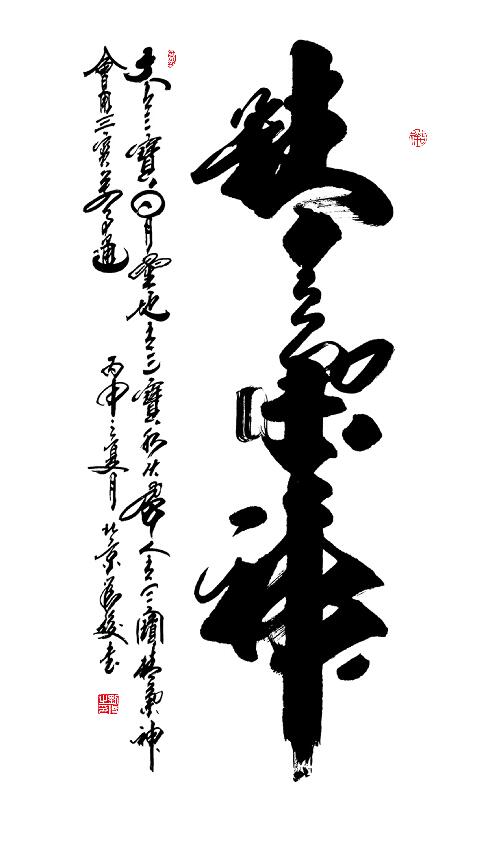 精气神
天有三寶日月星地有三寶水火風人有三寶精氣神
會用三寶萬事通
丙申之夏月北京
書